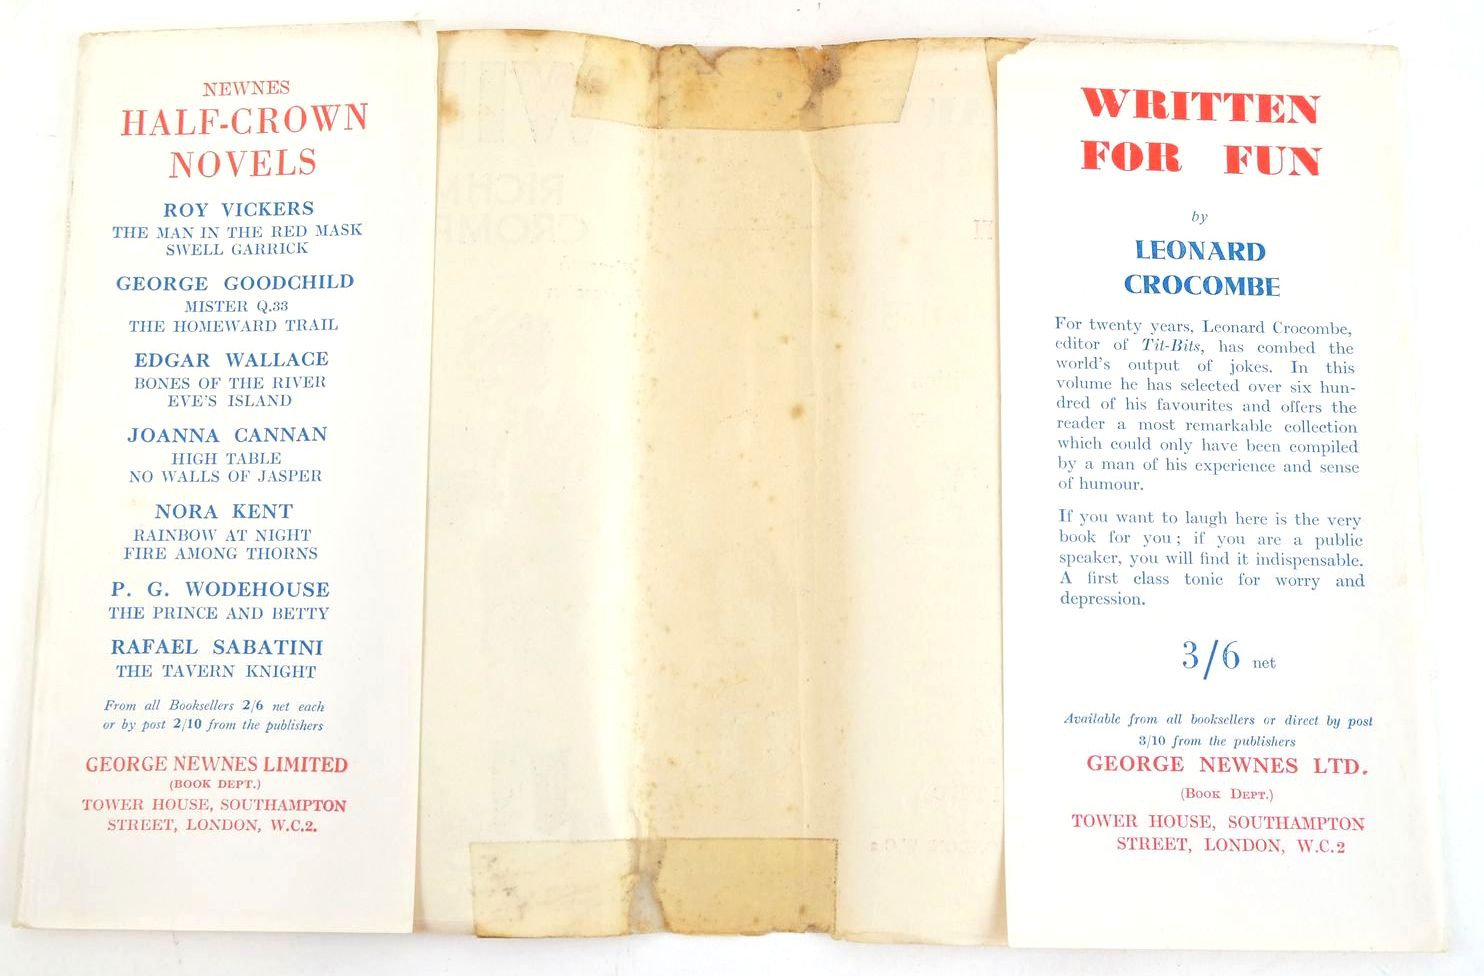 NEWNES
HALF-CROWN
NOVELS
ROY VICKERS
THE MAN IN THE RED MASK
SWELL GARRICK
GEORGE GOODCHILD
MISTER Q.33
THE HOMEWARD TRAIL
EDGAR WALLACE
BONES OF THE RIVER
EVE'S ISLAND
JOANNA CANNAN
HIGH TABLE
NO WALLS OF JASPER
NORA KENT
RAINBOW AT NIGHT
FIRE AMONG THORNS
P. G. WODEHOUSE
THE PRINCE AND BETTY
RAFAEL SABATINI
THE TAVERN KNIGHT
From all Booksellers 2/6 net each
or by post 2/10 from the publishers
GEORGE NEWNES LIMITED
(BOOK DEPT.)
TOWER HOUSE, SOUTHAMPTON
STREET, LONDON, W.C.2.
WRITTEN
FOR FUN
by
LEONARD
CROCOMBE
For twenty years, Leonard Crocombe,
editor of Tit-Bits, has combed the
world's output of jokes. In this
volume he has selected over six hun-
dred of his favourites and offers the
reader a most remarkable collection
which could only have been compiled
by a man of his experience and sense
of humour.
If you want to laugh here is the very
book for you; if you are a public
speaker, you will find it indispensable.
A first class tonic for worry and
depression.
3/6 net
Available from all booksellers or direct by post
3/10 from the publishers
GEORGE NEWNES LTD.
(BOOK DEPT.)
TOWER HOUSE, SOUTHAMPTON
STREET, LONDON, W.C.2